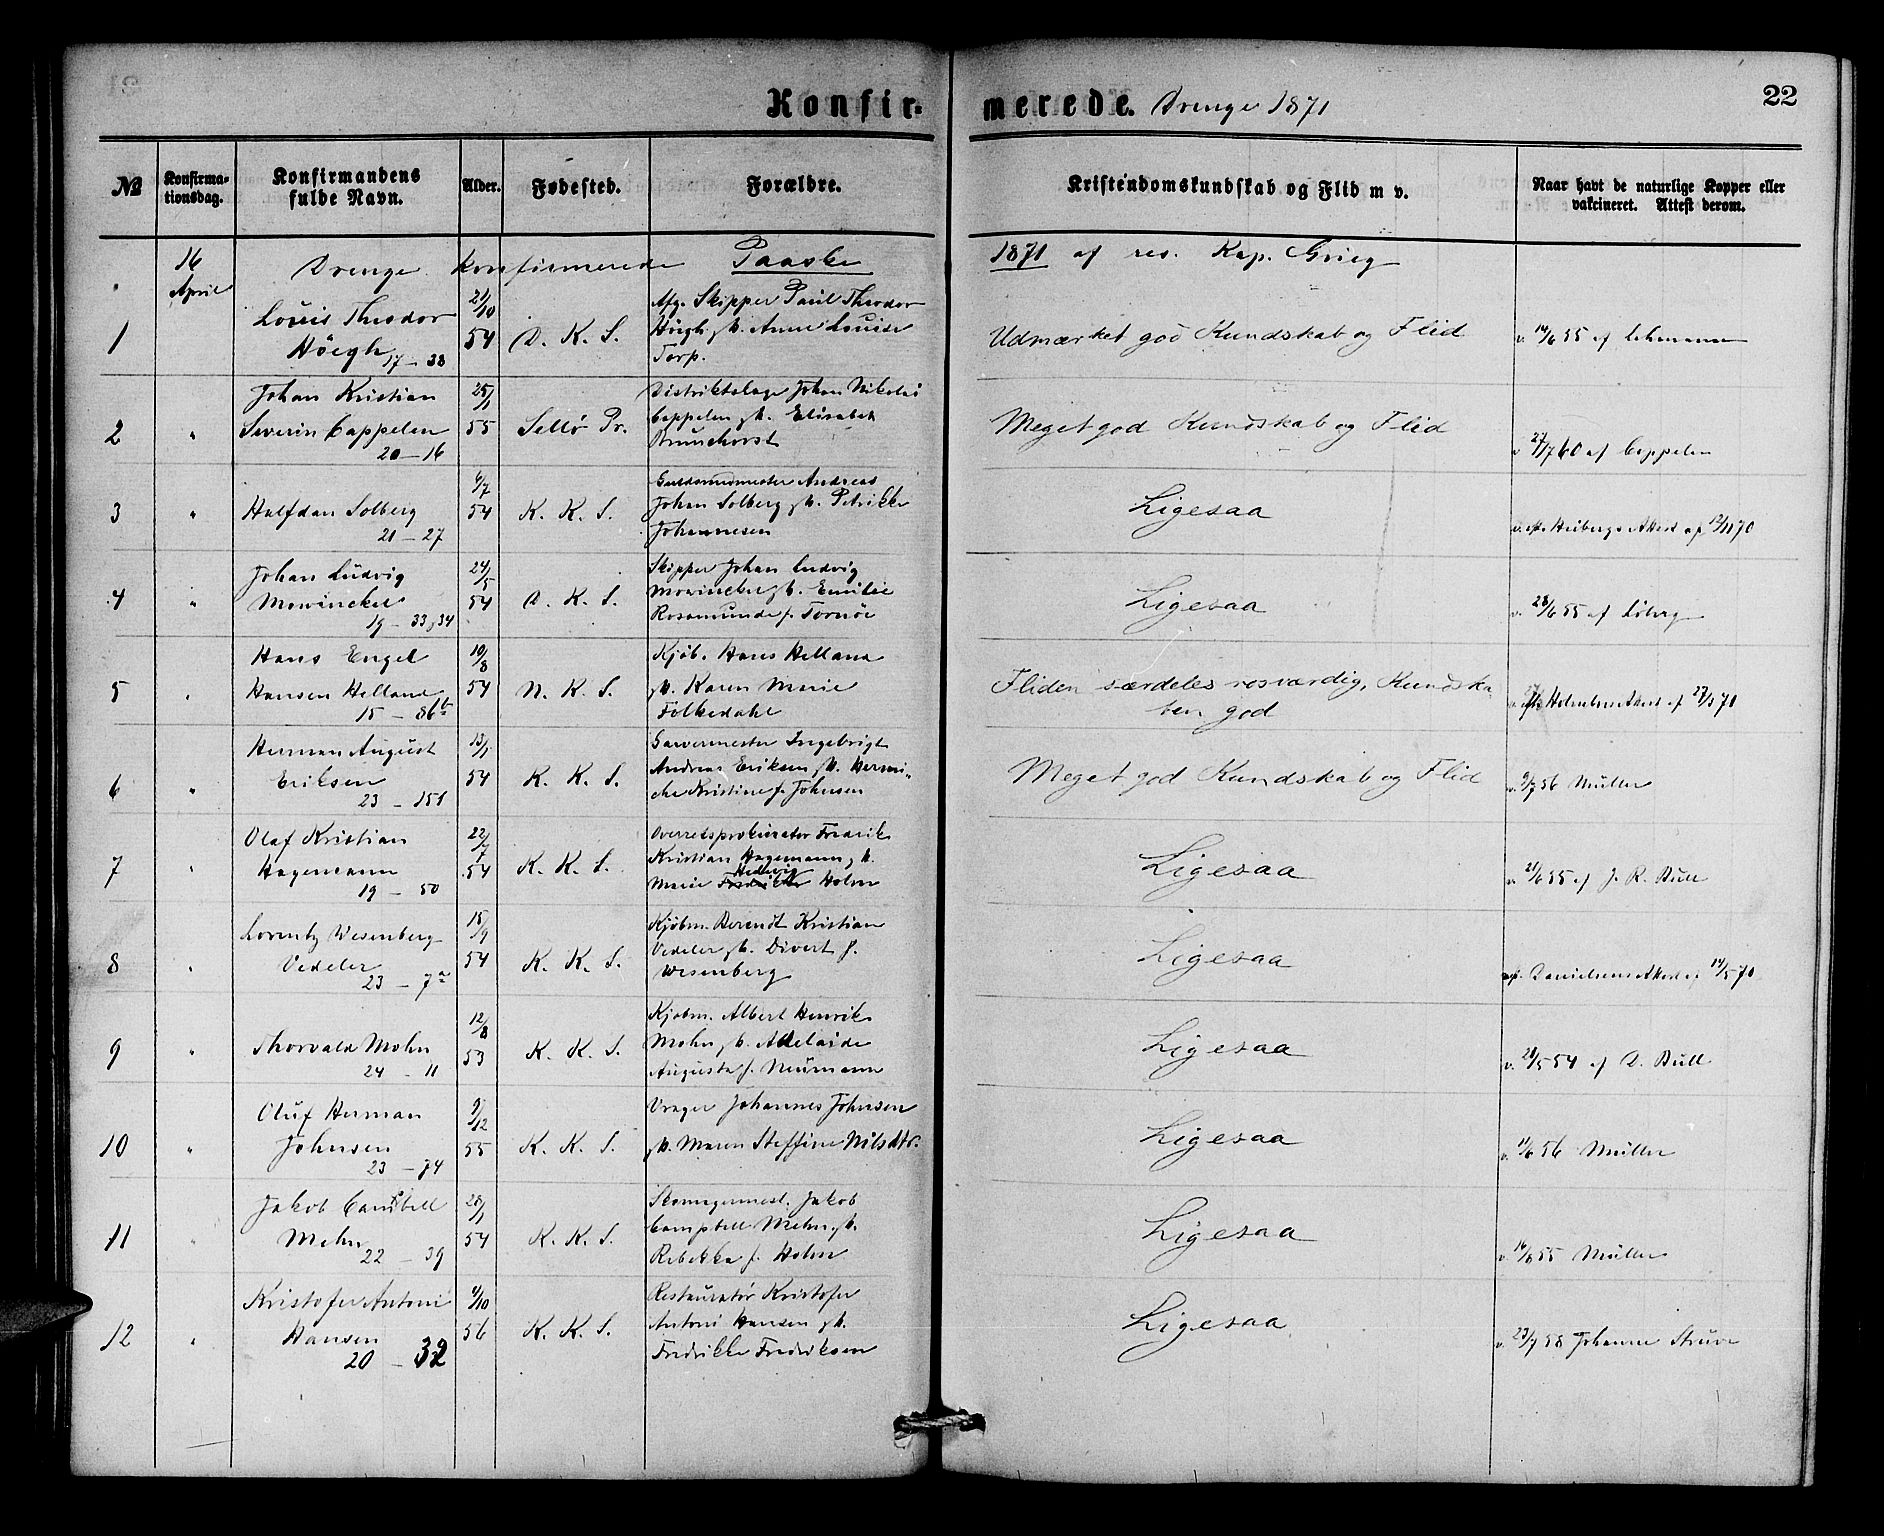 Konfir-merede. Drenge 1871
22
№ Konfirma-tionsdag. Konfirmandens fulde Navn. Alder. Fødested. Forældre. Kristendomskundskab og Flid m v. Naar havt de naturlige Kopper eller vakcineret. Attest derom.
16 April Drenge konfirmerede Paaske 1871 af res. Kap. Grieg
1 Louis Theodor Höegh 17-38
21/10 54 D. K. S.
Afg. Skipper Paul Theodor
Höegh, h. Anne Louise
Torp.
Udmærket god Kundskab og Flid
v. 14/6 55 af Lehmann
2 " Johan Kristian
Severin Cappelen
20-16
25/1 55 Sellø Pr.
Distriktslæge Johan Nikolai
Cappelen, h. Elisabeth
Meget god Kundskab og Flid
v 27/7 60 af Cappelen
3 " Halfdan Solberg
21-27
6/7 54 K. K. S.
Guldsmedmester Andreas
Johan Solberg, h. Petrikke
Johannesen
Ligesaa
v. eft. Heibergs Attest af 12/11 70
4 " Johan Ludvig
Mowinckel
19-33,34
24/5 54 D. K. S.
Skipper Johan Ludvig
Mowinckel, h. Emilie
Rosamunde f. Tornöe
Ligesaa
v. 28/6 55 af Löberg
5 " Hans Engel
Hansen Helland
15-86b
10/8 54 N. K. S.
Kjöb. Hans Helland
h. Karen Marie
Folkedahl
Fliden særdeles rosværdig, Kundska-
ben god
v. eft. Holmboes Attest af 27/5 70
6 " Herman August
Eriksen
23-151
13/1 54 K. K. S.
Garvermester Ingebrigt
Andreas Eriksen, h. Hermi-
che Kristine f. Johnsen
Meget god Kundskab og Flid
v. 9/7 56 Müller
7 " Olaf Kristian
Hagemann
19-50
22/7 54 K. K. S.
Overretsprokurator Fredrik
Kristian Hagemann, h.
Marie Hedevig Holm
Ligesaa
v. 21/6 55 af J. R. Bull
8 " Lorentz Wesenberg
Vedeler
23-7a
15/9 54 K. K. S.
Kjöbm. Berendt Kristian
Vedeler, h. Divert f.
Wesenberg
Ligesaa
v. eft. Danielsens Attest af 14/5 70
9 " Thorvald Mohn
24-11
12/8 53 K. K. S.
Kjöbm. Albert Henrik
Mohn, h. Adelaide
Augusta f. Neumann
Ligesaa
v. 21/5 54 af D. Bull
10 " Oluf Herman
Johnsen
23-74
9/12 55 K. K. S.
Vrager Johannes Johnsen
h. Maren Steffine Nilsdtr.
Ligesaa
v. 11/6 56 Müller
11 " Jakob Campbell
Mohn
22-39
28/1 54 K. K. S.
Skomagermest. Jakob
Campbell Mohn, h.
Rebekka f. Holm
Ligesaa
v. 16/8 55 Müller
12 " Kristofer Antoni
Hansen
20-32
4/10 56 K. K. S.
Restauratör Kristofer
Antoni Hansen, h.
Fredrikke Fredriksen
Ligesaa
v. 23/7 58 Johanne Struve